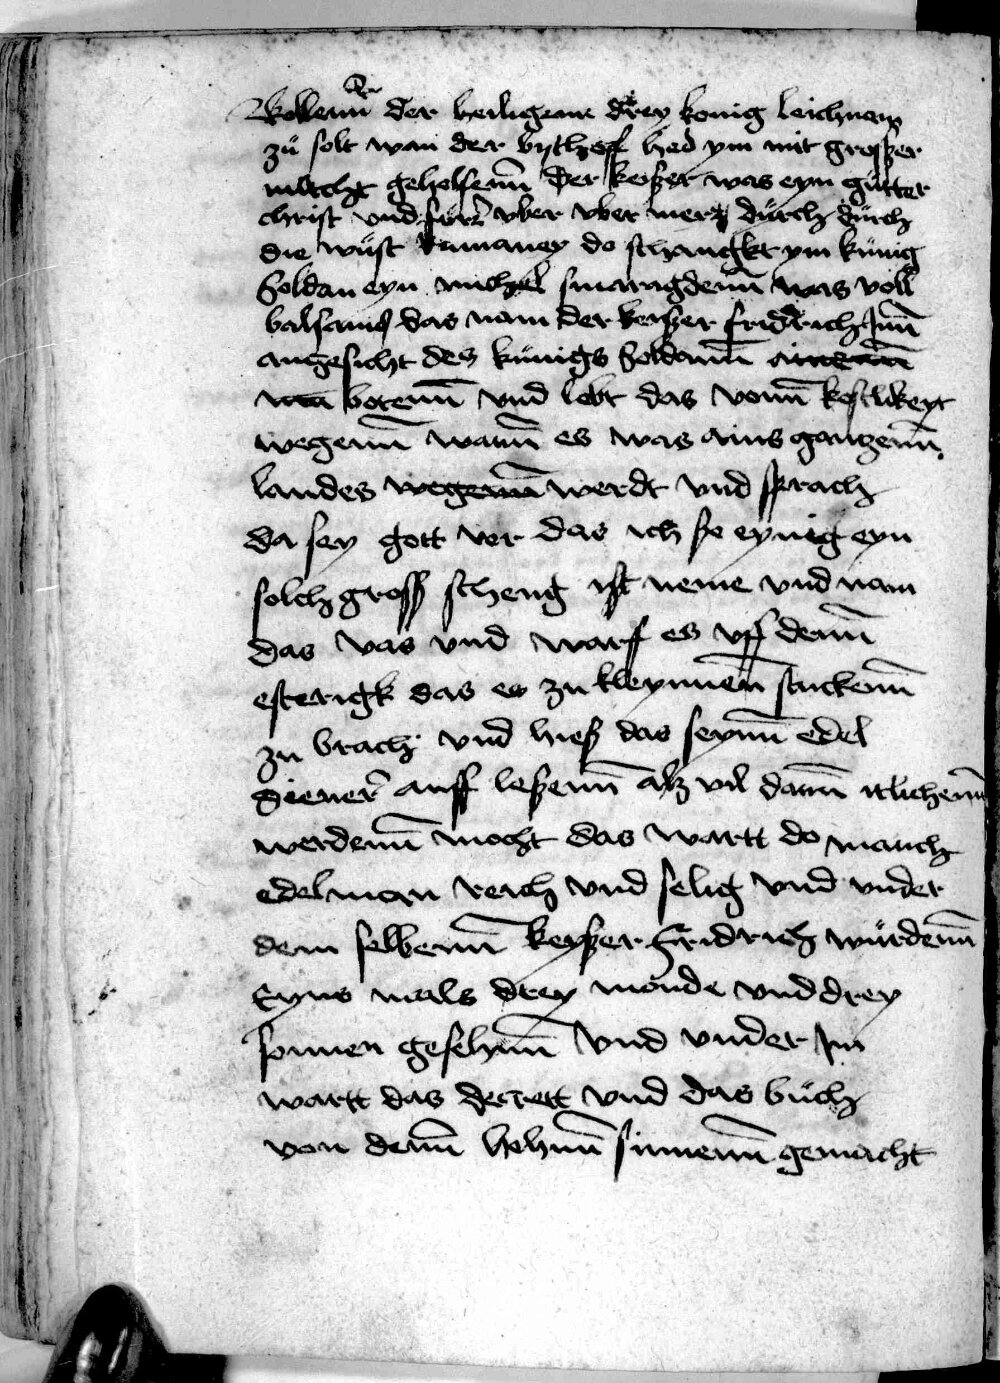 Kollenn der heiligenn drey konig leichnam
zů solt wan der bischoff hed ym mit grosßer
macht geholfenn Der keißer was eyn gůtter
christ vnd fůr vber vber mer dürch dürch
die wüst Rumaney do schangkt ym künig
Soldan eyn michel smaragdenn was voll
balsams das nam der keißer fridrich Inn
angesicht des künigs Soldann
botenn vnd lobt das vonn kostlikeyt
wegenn wann es was ains gantzenn
landes wegenn werdt vnd sprach
da sey gott vor das ich ße eynig eyn
solch gross scheng ist neme vnd nam
das vas vnd warf es vff denn
esterigk das es zu kleynnenn stuckenn
zu brach vnd hieß das seynn edel
diener auff leßenn alß vil dann itlichenn
werdenn mocht das wartt do manch
edelman reich vnd selig vnd vnder
dem selbenn keyßer Fridrich würdenn
Eyns mals drey monde vnd drey
sonnen gesehnn vnd vnder Im
wartt das decrett vnd das bůch
von denn hohnn sinnenn gemacht